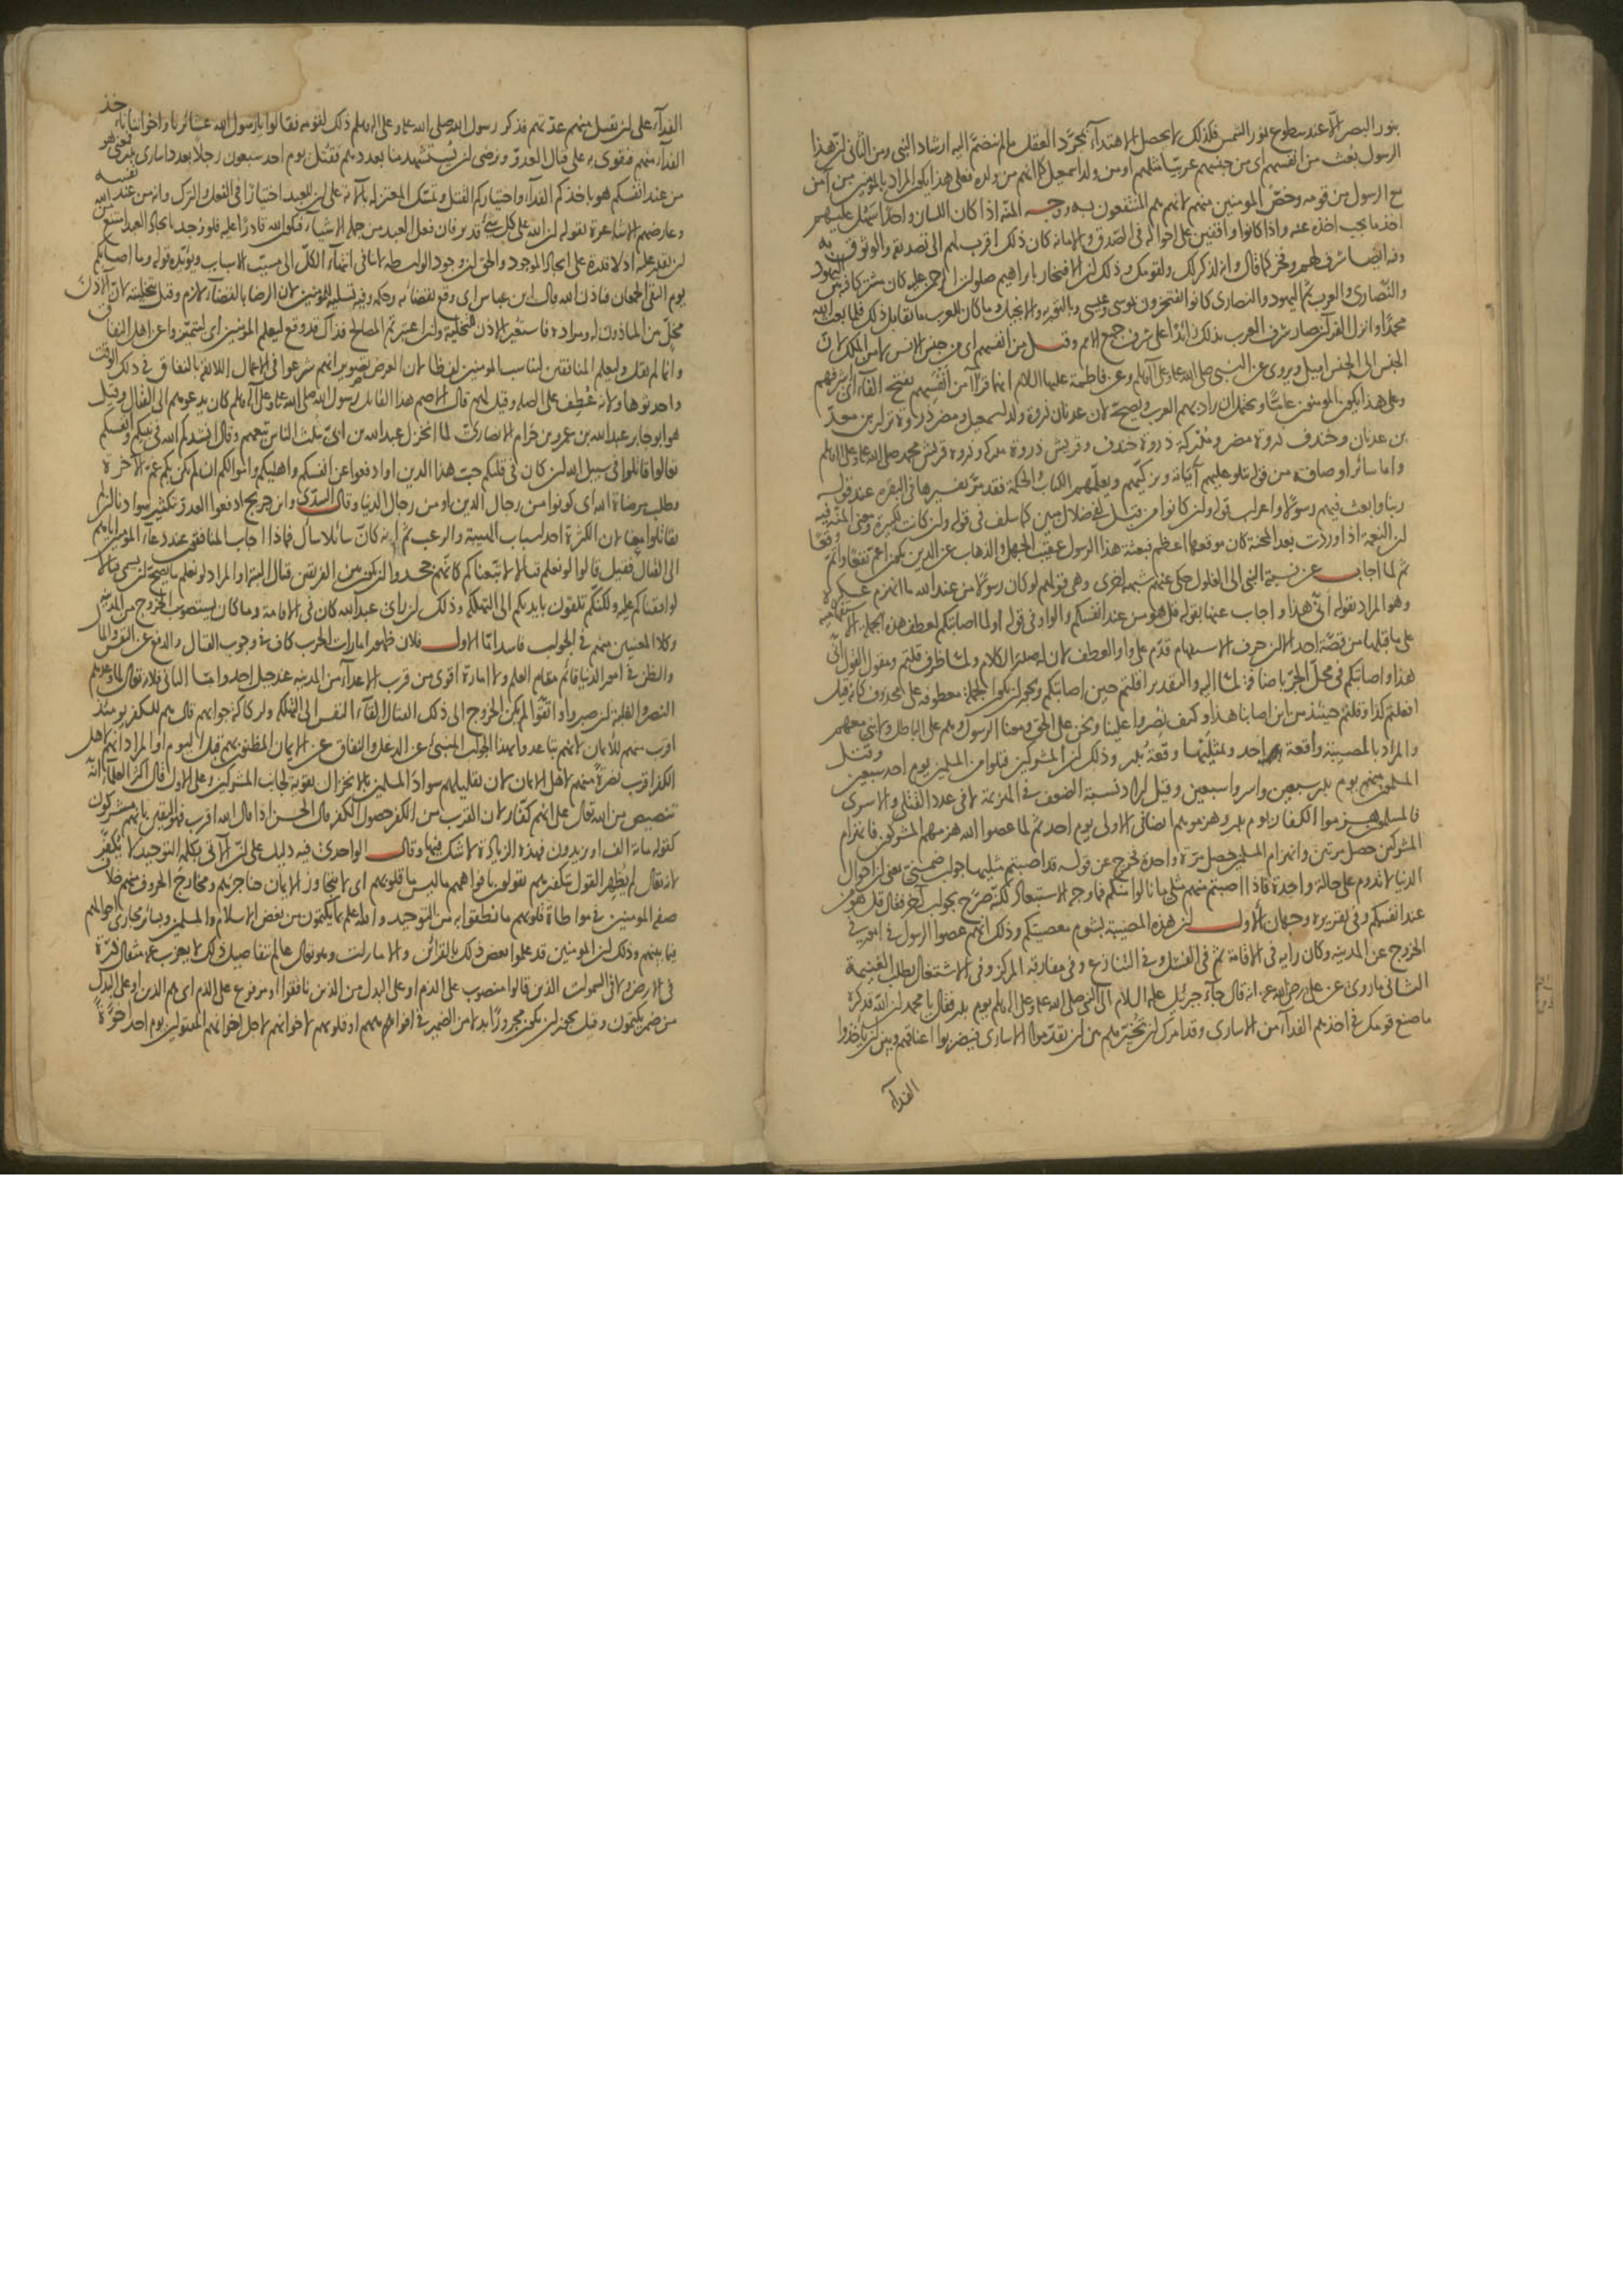 بنور البصر الا عند سطوع نور الشمس فكذلك لا يحصل الاهتداء بمجرد العقل ما لم ينضم اليه ارشاد النبى ومن الثانى ان هذا
الرسول بعث من انفسهم اى من جنسهم عربيا مثلهم او من ولد اسمعيل كما انهم من ولده فعلى هذا يكون المراد بالمومنين من آمن
مع الرسول من قومه وخص المومنين منهم لانهم هم المنتفعون به ووجه المنة اذا كان اللسان واحدا سهل عليهم
اخذ ما يجب اخذه عنه واذا كانوا واقفين على احواله فى الصدق والامانة كان ذلك اقرب لهم الى تصديقه والوثوق به
وفيه ايضا شرف لهم وفخر كما قال وانه لذكر لك ولقومك وذلك ان الافتخار بابراهيم كان مشتركا فيه من اليهود
والنصارى والعرب ثم اليهود والنصارى كانوا يفتخرون بموسى وعيسى وبالتورية والانجيل وما كان للعرب ما يقابل ذلك فلما بعث الله
محمدا وانزل القرآن صار شرف العرب بذلك زائدا على شرف جميع الامم وقيل من انفسهم اى من جنس الانس لا من الملك لان
الجنس الى الجنس اميل ويروى عن النبى صلى الله عليه وعلى آله وسلم وعن فاطمة عليها السلام انهما قرأا من انفسهم بفتح الفاء اى اشرفهم
وعلى هذا يكون المومنون عاما ويحتمل ان يراد بهم العرب ويصح لان عدنان ذروة ولد اسمعيل ومضر ذروة نزار بن معد
بن عدنان وخندف ذروة مضر ومدركة ذروة خندف وقريش ذروة مدركة وذروة قريش محمد صلى الله عليه وعلى آله وسلم
واما سائر اوصافه من قوله يتلو عليهم آياته ويزكيهم ويعلمهم الكتاب والحكمة فقد مر تفسيرها فى البقرة عند قوله
ربنا وابعث فيهم رسولا واعراب قوله وان كانوا من قبل لفى ضلال مبين كما سلف فى قوله وان كانت لكبيرة ومعنى المنة فيه
ان النعمة اذا وردت بعد المحنة كان موقعها اعظم فبعثة هذا الرسول عقيب الجهل والذهاب عن الدين يكون اعم نفعا واتم وقعا
ثم لما اجاب عن نسبة النبى الى الغلول حكى عنهم شبهة اخرى وهى قولهم لو كان رسولا من عند الله ما انهزم عسكره
وهو المراد بقوله أنى هذا واجاب عنها بقوله قل هو من عند انفسكم والواو فى قوله اولما اصابتكم لعطف هذه الجملة الاستفهامية
على ما قبلها من قصة احد الا ان حرف الاستفهام قدم على واو العطف لان له صدر الكلام ولما ظرف قلتم ومقول القول انى
هذا واصابتكم فى محل الجر باضافة لما اليه والتقدير اقلتم حين اصابتكم ويجوز ان يكون الجملة معطوفة على محذوف كانه قيل
افعلتم كذا وقلتم حينئذ من اين اصابنا هذا وكيف نصروا علينا ونحن على الحق ومعنا الرسول وهم على الباطل ولا نبى معهم
والمراد بالمصيبة واقعة احد وبمثليها وقعة بدر وذلك ان المشركين قتلوا من المسلمين يوم احد سبعين وقتل
المسلمون منهم يوم بدر سبعين واسروا سبعين وقيل اراد نسبة الضعف فى الهزيمة لا فى عدد القتلى والاسرى
فالمسلمون هزموا الكفار يوم بدر وهزموهم ايضا فى الاولى يوم احد ثم لما عصوا الله هزمهم المشركون فانهزام
المشركين حصل مرتين وانهزام المسلمين حصل مرة واحدة فخرج عن قوله قد اصبتم مثليها جواب ضمنى يعنى ان احوال
الدنيا لا تدوم على حالة واحدة فاذا اصبتم منهم مثلى ما نالوا منكم فما وجه الاستبعاد لكنه صرح بجواب آخر فقال قل هو من
عند انفسكم وفى تقريره وجهان الاول ان هذه المصيبة بشوم معصيتكم وذلك انهم عصوا الرسول فى امور فى
الخروج عن المدينة وكان رايه فى الاقامة ثم فى الفشل وفى التنازع وفى مفارقة المركز وفى الاشتغال بطلب الغنيمة
الثانى ما روى عن على رضى الله عنه انه قال جاء جبرئيل عليه السلام الى النبى صلى الله عليه وعلى آله وسلم يوم بدر فقال يا محمد ان الله قد كره
ما صنع قومك فى اخذهم الفداء من الاسارى وقد امرك ان تخيرهم بين ان يقدموا الاسارى فيضربوا اعناقهم وبين ان ياخذوا
الفداء
الفداء على ان يقتل منهم عدتهم فذكر رسول الله صلى الله عليه وعلى آله وسلم ذلك لقومه فقالوا يا رسول الله عشائرنا واخواننا ناخذ
الفداء منهم فنقوى به على قتال العدو ونرضى ان يستشهد منا بعددهم فقتل يوم احد سبعون رجلا بعدد اسارى بدر فمعنى هو
من عند انفسكم هو باخذكم الفداء واختياركم القتل وتمسك المعتزلة بالآية على ان للعبد اختيارا فى الفعل والترك وانه من عند نفسه
وعارضهم الاشاعرة بقوله ان الله على كل شئ قدير فان فعل العبد من جملة الاشياء فيكون الله قادرا عليه فلو وجد بايجاد العبد امتنع
من الله ان يقدر عليه اذ لا قدرة على ايجاد الموجود والحق ان وجود الواسطة لا ينافى انتهاء الكل الى مسبب الاسباب ويؤيده قوله وما اصابكم
يوم التقى الجمعان فباذن الله قال ابن عباس اى وقع بقضائه وحكمه وفيه تسلية للمومنين لان الرضا بالقضاء لازم وقيل بتخليته لان الآذن
مخل بين الماذون له ومراده فاستعير الاذن للتخلية ولتراعى ثم المصالح فذاك قد وقع ليعلم المومنين اى ليتميزوا عن اهل النفاق
وانما لم يقل وليعلم المنافقين ليناسب المومنين لفظا لان الغرض تصوير انهم شرعوا فى الاعمال اللائقة بالنفاق فى ذلك الوقت
واحدثوها ولانه عطف على الصلة وقيل لهم قال الاصم هذا القائل رسول الله صلى الله عليه وعلى آله وسلم كان يدعوهم الى القتال وقيل
هو ابو جابر عبد الله بن عمرو بن حرام الانصارى لما انخزل عبد الله بن ابى بثلث الناس تبعهم وقال انشدكم الله فى نبيكم وانفسكم
تعالوا قاتلوا فى سبيل الله ان كان فى قلبكم حب هذا الدين او ادفعوا عن انفسكم واهليكم واموالكم ان لم يكن بكم هم الآخرة
وطلب مرضاة الله اى كونوا من رجال الدين او من رجال الدنيا وقال السدى وابن جريج ادفعوا العدو بتكثير سوادنا ان لم
تقاتلوا معنا لان الكثرة احد اسباب الهيبة والرعب ثم انه كان سائلا سأل فماذا اجاب المنافقون عند دعاء المومنين اياهم
الى القتال فقيل قالوا لو نعلم قتالا لاتبعناكم كانهم جحدوا ان يكون بين الفريقين قتال البتة او المراد لو نعلم ما يصح ان يسمى قتالا
لوافقناكم عليه ولكنكم تلقون بايديكم الى التهلكة وذلك ان راى عبد الله كان فى الاقامة وما كان يستصوب الخروج من المدينة
وكلا المعنيين منهم فى الجواب فاسد اما الاول فلان ظهور امارات الحرب كاف فى وجوب القتال والدفع عن النفس والمال
والظن فى امور الدنيا قائم مقام العلم ولا امارة اقوى من قرب الاعداء من المدينة عند جبل احد واما الثانى فلانه تعالى لما وعدهم
النصر والغلبة ان صبروا واتقوا لم يكن الخروج الى ذلك القتال القاء النفس الى التهلكة ولركاكة جوابهم قال هم للكفر يومئذ
اقرب منهم للايمان لانهم تباعدوا بهذا الجواب المنبئ عن الدغل والنفاق عن الايمان المظنون بهم قبل اليوم او المراد انهم لاهل
الكفر اقرب نصرة منهم لاهل الايمان لان تقليلهم سواد المسلمين بالانخزال تقوية لجانب المشركين وعلى الاول قال اكثر العلماء انه
تنصيص من الله تعالى على انهم كفار لان القرب من الكفر حصول الكفر قال الحسن اذا قال الله اقرب فهو اليقين بانهم مشركون
كقوله مائة الف او يزيدون فهذه الزيادة لا شك فيها وقال الواحدى فيه دليل على ان الآتى بكلمة التوحيد لا يكفر
لانه تعالى لم يظهر القول بتكفيرهم يقولون بافواههم ما ليس فى قلوبهم اى لا يتجاوز الايمان حناجرهم ومخارج الحروف منهم خلاف
صفة المومنين فى مواطاة قلوبهم ما نطقوا به من التوحيد والله اعلم بما يكتمون من بغض الاسلام والمسلمين وسائر مجارى احوالهم
فيما بينهم وذلك ان المومنين قد علموا بعض ذلك بالقرائن والامارات وهو تعالى عالم بتفاصيل ذلك لا يعزب عنه مثقال ذرة
فى الارض ولا فى السموات الذين قالوا منصوب على الذم او على البدل من الذين نافقوا او مرفوع على الذم اى هم الذين او على البدل
من ضمير يكتمون وقيل يجوز ان يكون مجرورا بدلا من الضمير فى افواههم او قلوبهم لاخوانهم لاجل اخوانهم المقتولين يوم احد اخوة